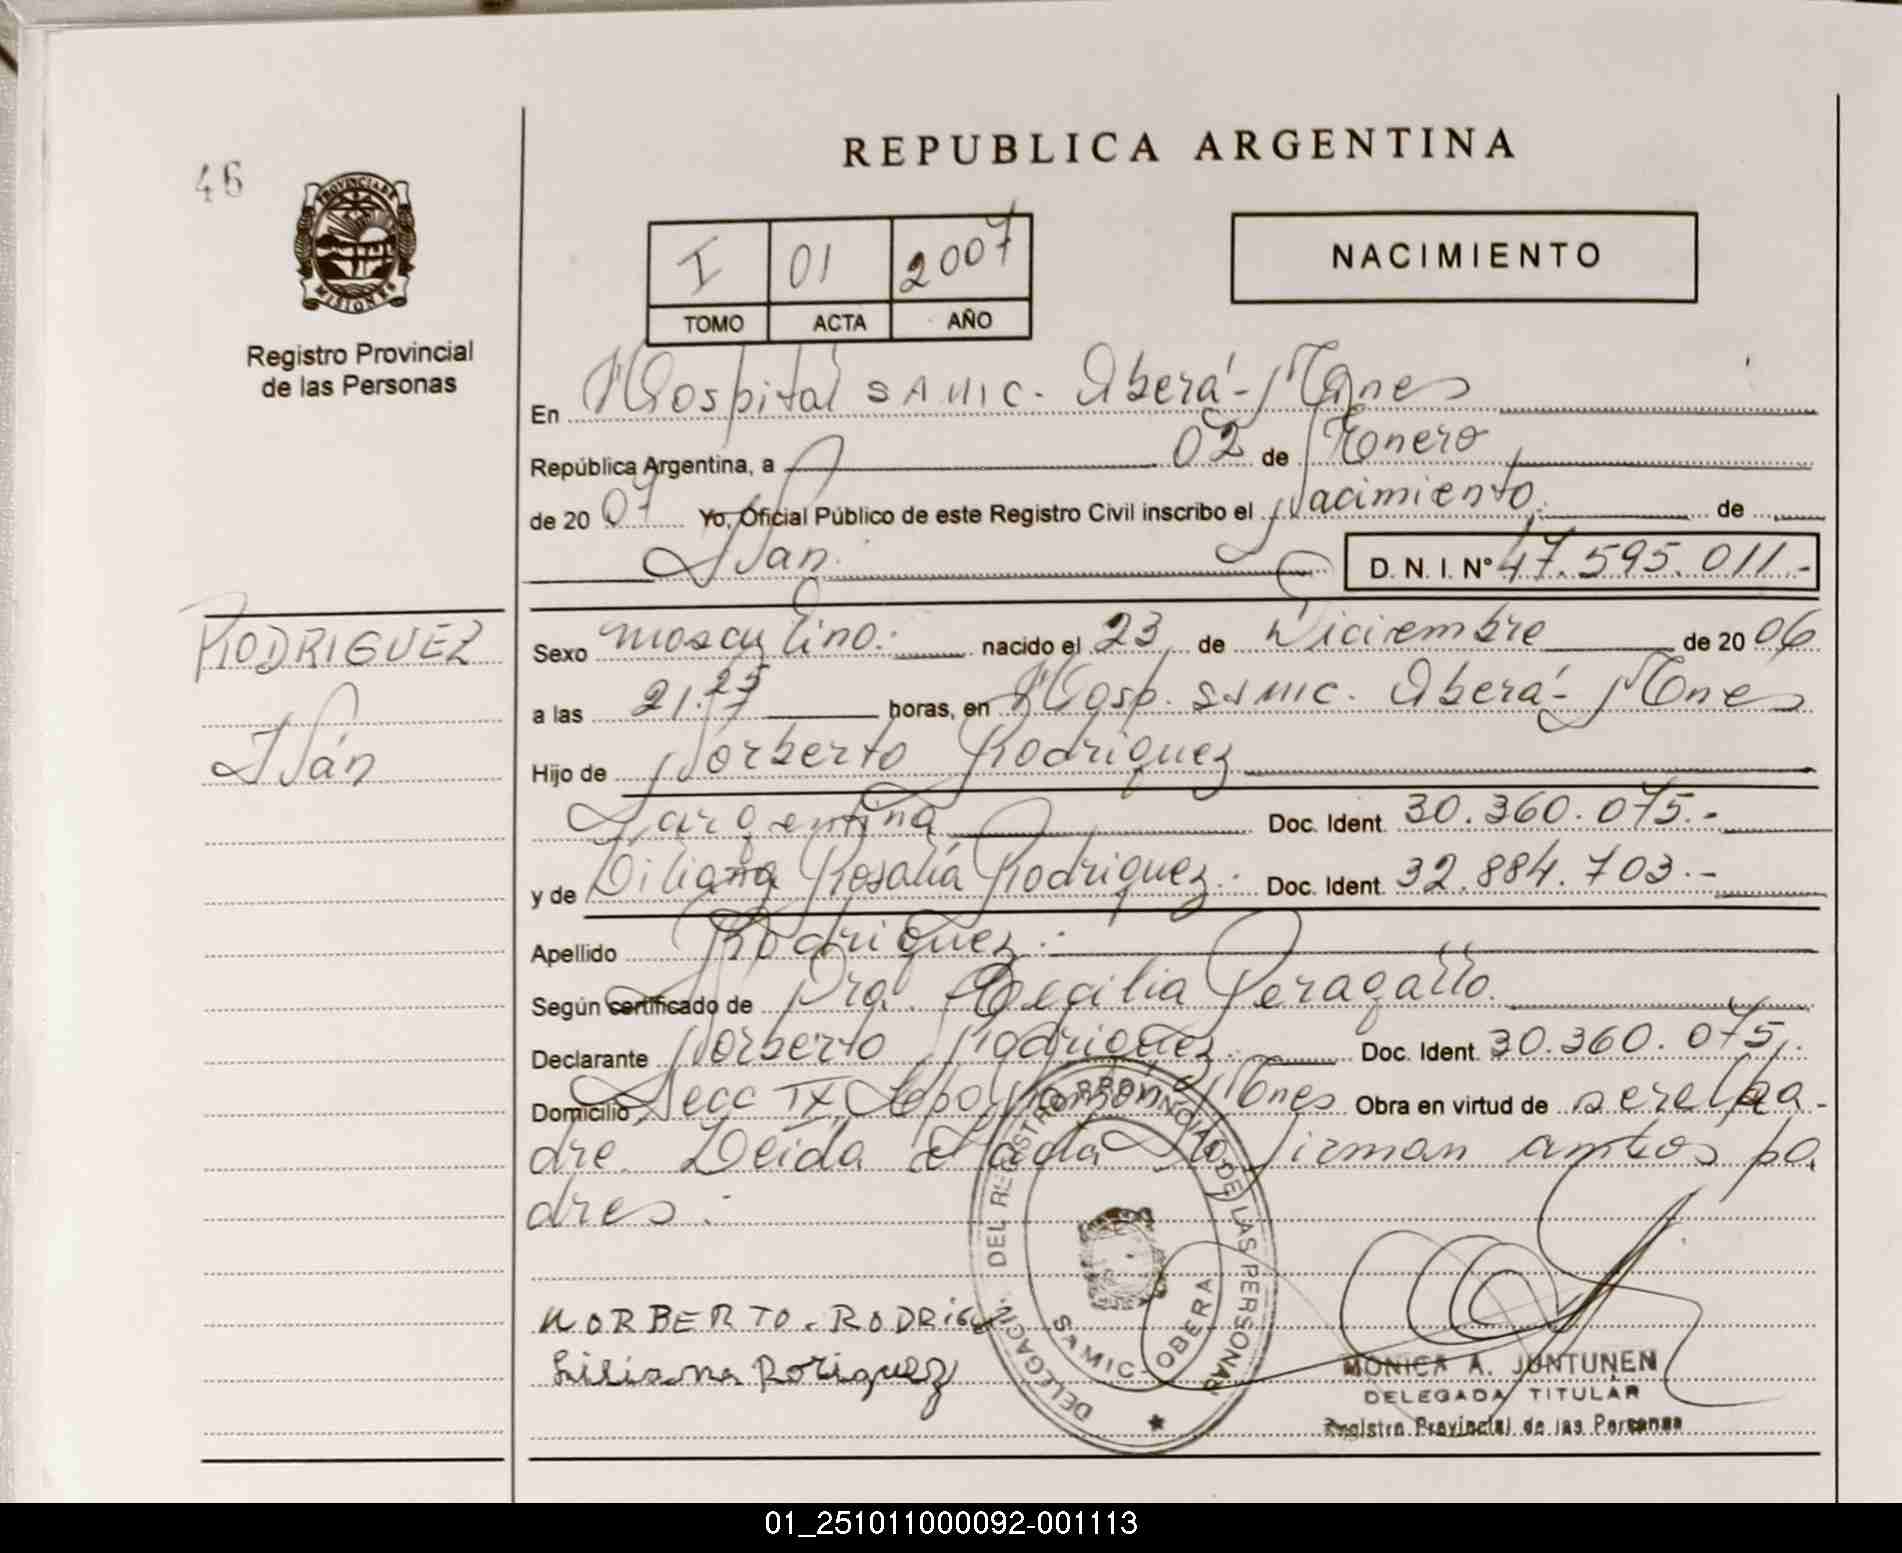 REPUBLICA ARGENTINA
46
PROVINCIA DE
MISIONES
Registro Provincial
de las Personas
I 01 2007
TOMO ACTA AÑO
NACIMIENTO
En Hospital SAMIC. Oberá - Mnes
República Argentina, a 02 de Enero
de 2007 Yo, Oficial Público de este Registro Civil inscribo el Nacimiento de
Iván D. N. I. Nº 47.595.011.-
RODRIGUEZ
Iván
Sexo masculino.- nacido el 23 de Diciembre de 2006
a las 21.25 horas, en Hosp. SAMIC. Oberá - Mnes
Hijo de Norberto Rodriguez
argentina Doc. Ident. 30.360.075.-
y de Liliana Rosalia Rodriguez.- Doc. Ident. 32.884.703.-
Apellido Rodriguez.-
Según certificado de Dra. Cecilia Peragallo.
Declarante Norberto Rodriguez.- Doc. Ident. 30.360.075.
Domicilio Secc IX Mnes Obra en virtud de ser el pa-
dre. Leida el acta la firman ambos pa
dres.-
NORBERTO. RODRIGU
Liliana Roriguez
DELEGACI DEL REGISTRO PROVINCIAL DE LAS PERSONAS
SAMIC - OBERA
MONICA A. JUNTUNEN
DELEGADA TITULAR
Registro Provincial de las Personas
01_251011000092-001113